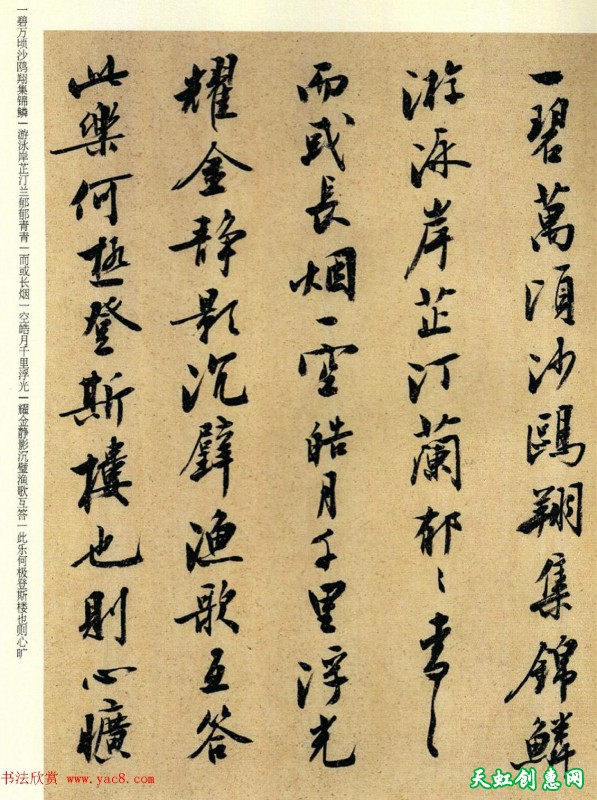 一碧萬頃沙鷗翔集錦鱗
游泳岸芷汀蘭郁〻青〻
而或長烟一空皓月千里浮光
耀金静影沉璧漁歌互答
此樂何極登斯樓也則心曠
一碧万顷沙鸥翔集锦鳞|游泳岸芷汀兰郁郁青青|而或长烟一空皓月千里浮光|耀金静影沉璧渔歌互答|此乐何极登斯楼也则心旷
书法欣赏 www.yac8.com
天虹创惠网